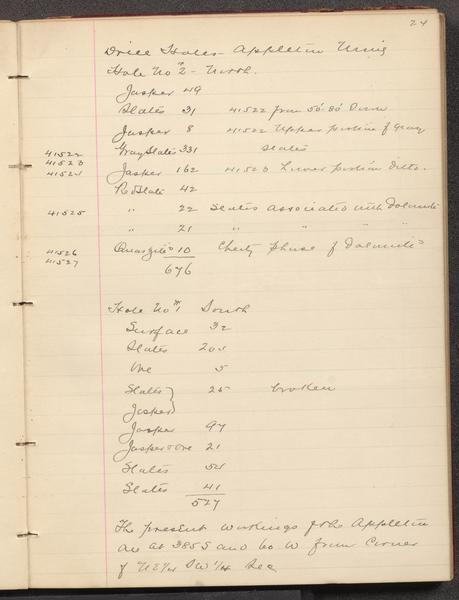 24
Drill Holes - Appleton Mine
Hole No 2 - North.
Jasper 49
Slates 31 41522 from 50'-80' Down
Jasper 8 41522 Upper portion of Gray
41522 Gray Slates 331 Slates
41523
41524 Jasper 162 41523 Lower portion Ditto.
R. Slate 42
41525 " 22 Slates associated with Dolomite
" 21 " " " "
41526 Quartzite 10 Cherty phase of Dolomite
41527
676
Hole No 1 South
Surface 32
Slates 205
Ore 5
Slates } 25 broken
Jasper }
Jasper 97
Jasper & Ore 21
Slates 54
Slates 41
527
The present workings of the Appleton
are at 385 S and 60 W from Corner
of N 2 1/4 SW 1/4 Sec